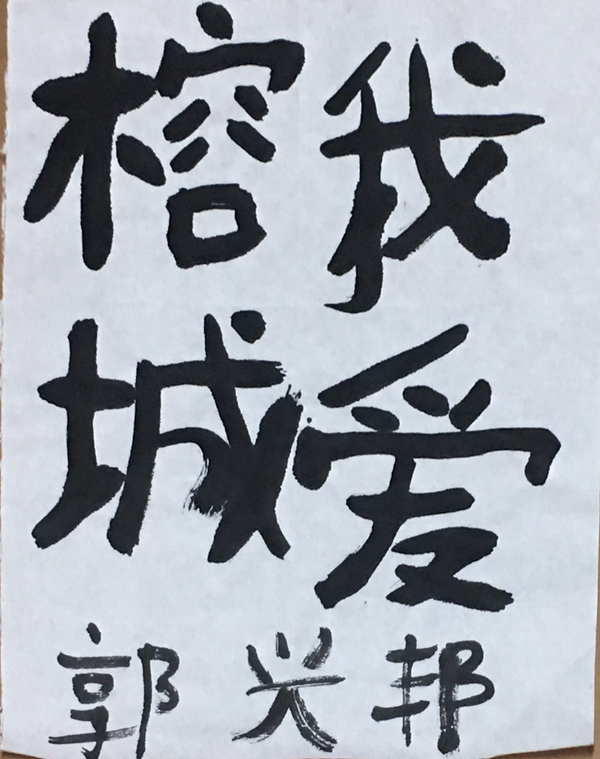 我爱
榕城
郭兴邦